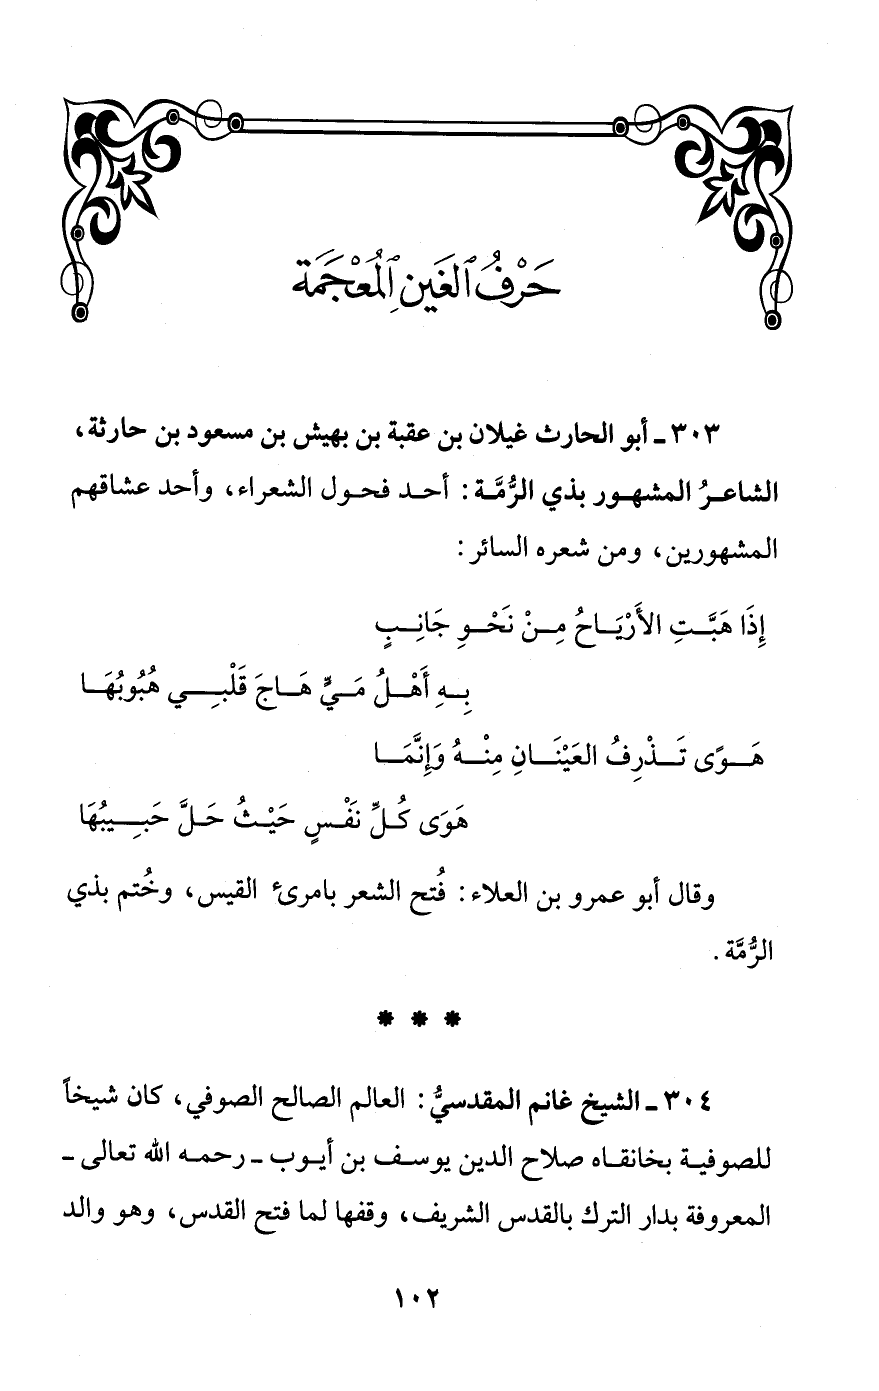 حَرْفُ ٱلغَينِ ٱلمُعْجَمَة
٣٠٣ ـ أبو الحارث غيلان بن عقبة بن بهيش بن مسعود بن حارثة،
الشاعرُ المشهور بذي الرُّمَّة: أحد فحول الشعراء، وأحد عشاقهم
المشهورين، ومن شعره السائر:
إِذَا هَبَّتِ الأَرْيَاحُ مِنْ نَحْوِ جَانِبٍ
بِهِ أَهْلُ مَيٍّ هَاجَ قَلْبِي هُبُوبُهَا
هَوًى تَذْرِفُ العَيْنَانِ مِنْهُ وَإِنَّمَا
هَوَى كُلِّ نَفْسٍ حَيْثُ حَلَّ حَبِيبُهَا
وقال أبو عمرو بن العلاء: فُتح الشعر بامرئ القيس، وخُتم بذي
الرُّمَّة.
* * *
٣٠٤ ـ الشيخ غانم المقدسيُّ: العالم الصالح الصوفي، كان شيخاً
للصوفية بخانقاه صلاح الدين يوسف بن أيوب ـ رحمه الله تعالى ـ
المعروفة بدار الترك بالقدس الشريف، وقفها لما فتح القدس، وهو والد
١٠٢